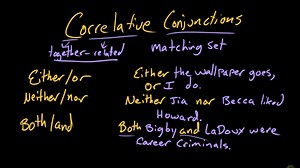 Correlative Conjunctions
together-related
matching set
Either/or
Neither/nor
Both/and
Either the wallpaper goes,
or I do.
Neither Jia nor Becca liked
Howard.
Both Bigby and LaDoux were
career criminals.